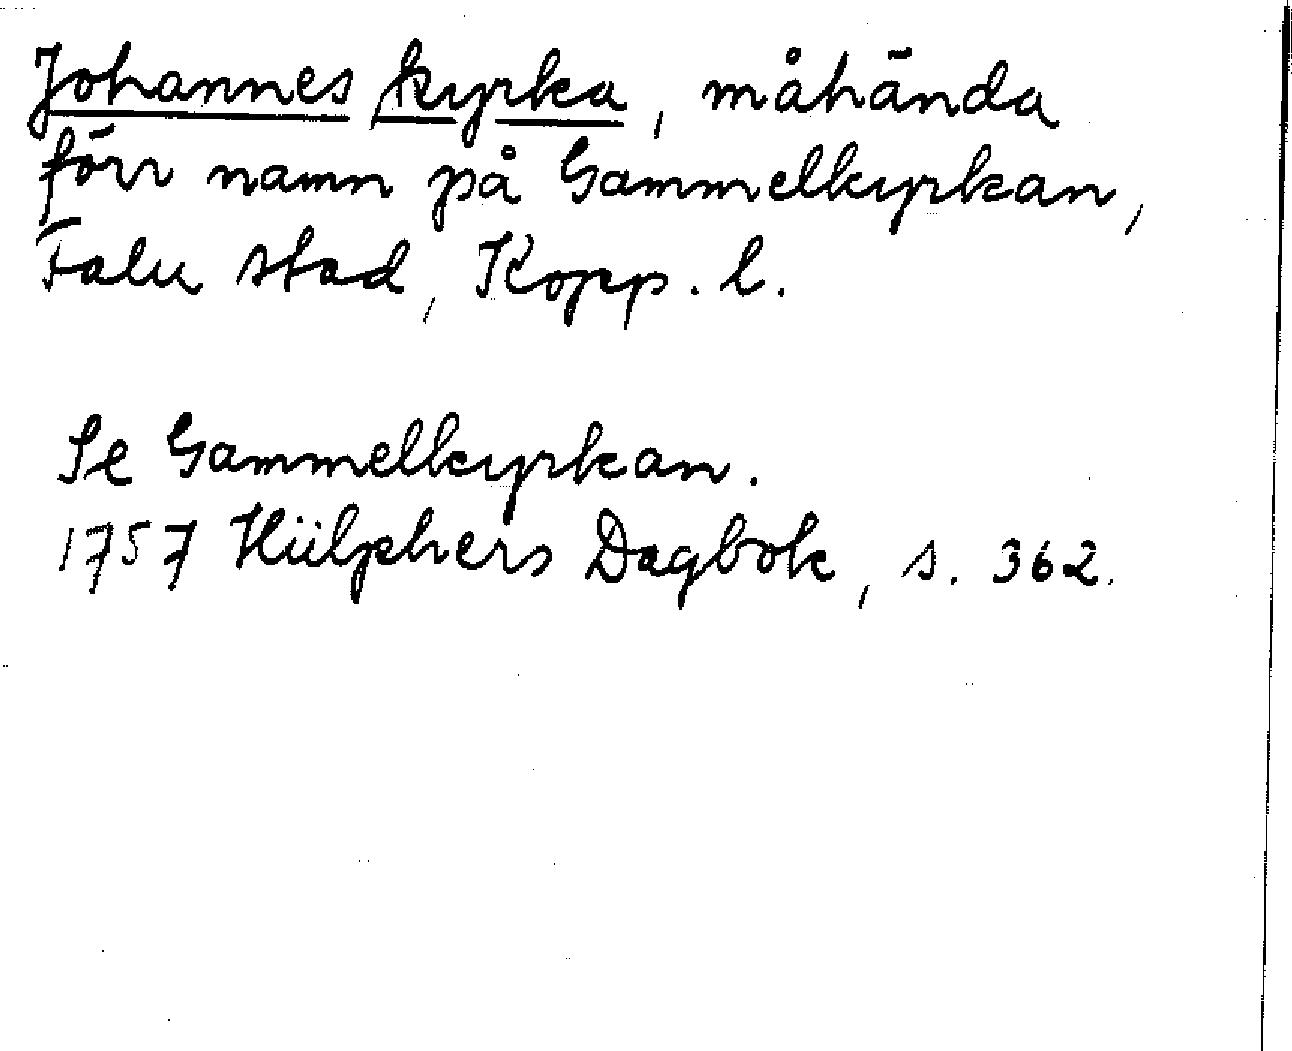 Johannes kyrka, måhända
förr namn på Gammelkyrkan,
Falu stad, Kopp. l.
Se Gammelkyrkan.
1757 Hülphers Dagbok, s. 362.